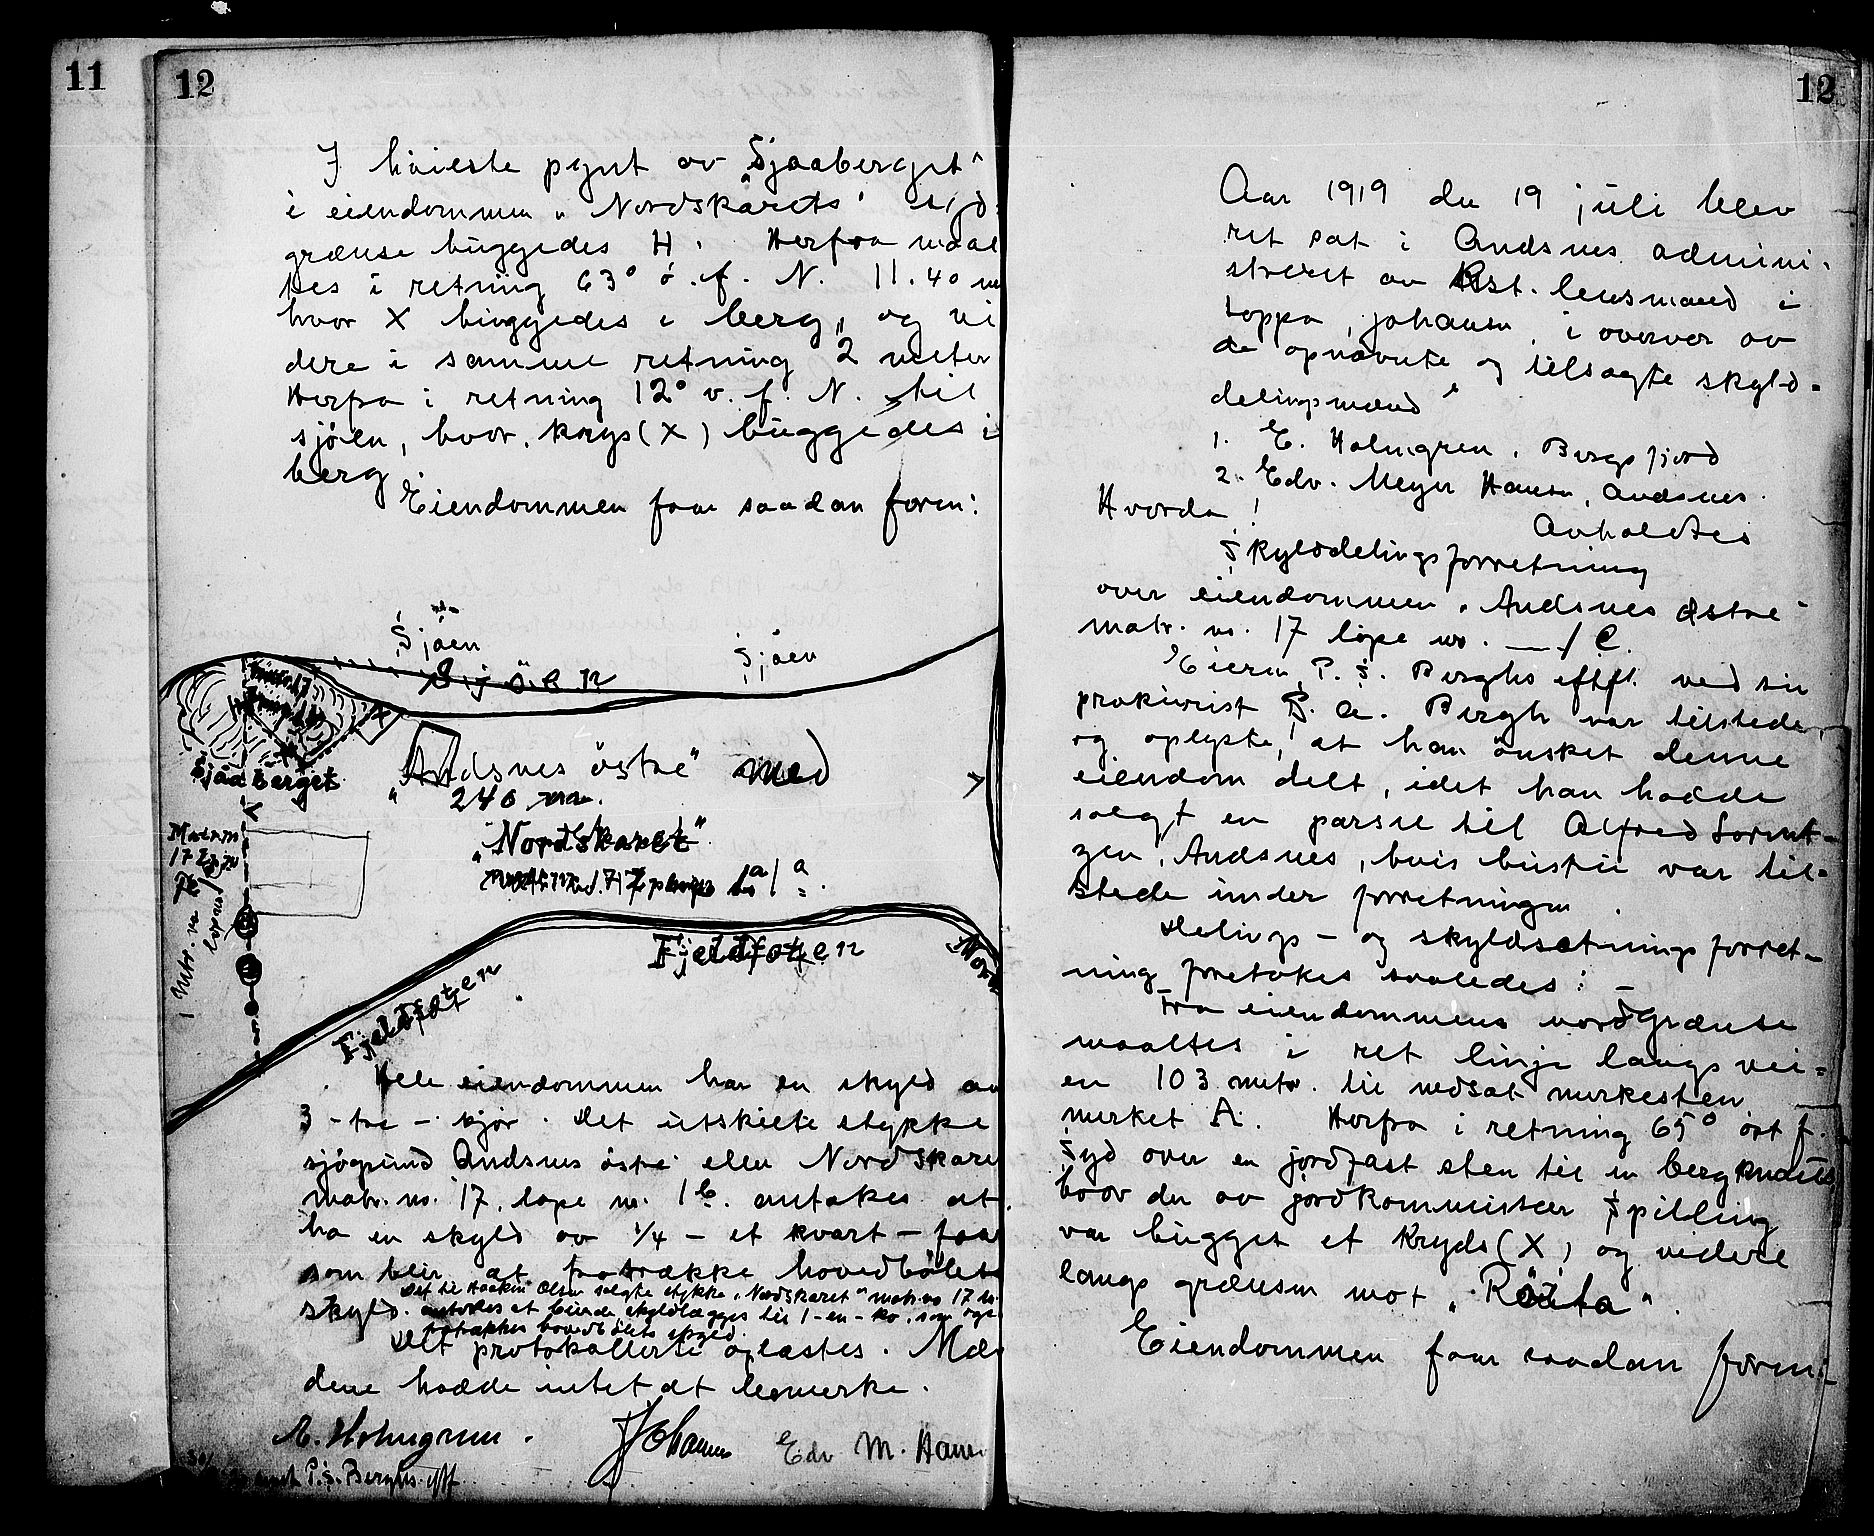 11
12
I høieste pynt av „Sjaaberget“
i eiendommen „Nordskarets“ syd-
grænse huggedes H. Herfra maal
tes i retning 63° ø. f. N. 11.40 m
hvor X huggedes i berg, og vi
dere i samme retning 2 meter
Herfra i retning 12° v. f. N. til
sjöen, hvor kryds (X) huggedes i
berg.
Eiendommen faar saadan form:
Sjöen
Sjöen
Sjöen
Sjaaberget
„Andsnes östre“ med
240 m.
„Nordskaret“
1a
Matr. nr
17
Fjeldfoten
Fjeldfoten
Nord
Hele eiendommen har en skyld av
3 - tre - kjør. Det utskilte stykke
sjøgrund Andsnes östre eller Nordskare
matr. no. 17, løpe nr. 1b. antakes at
ha en skyld av 1/4 - et kvart - faar
som blir at fratrække hovedbölets
skyld.
Det til Haakin Olsen solgte stykke „Nordskaret“ matr. no 17
antokes at burde skyldlægges til 1 - en - ko, som ogs
fratrækkes hovedbölets skyld.
Det protokollerte oplæstes. Mæn
dene hadde intet at bemerke.
E. Holmgren. Johansen Edv M. Hans
P. S. Berghs eftf
12
Aar 1919 den 19 juli blev
ret sat i Andsnes admini-
streret av kst. lensmand i
Loppa, Johansen, i overvær av
de opnævnte og tilsagte skyld-
delingsmænd
1. E. Holmgren, Bergsfjord
2. Edv. Meyer Hansen, Andsnes.
Hvorda!
Avholdtes
Skylddelingsforretning
over eiendommen „Andsnes östre“
matr. no. 17 løpe no. — 1 c.
Eieren, P. S. Berghs eftfl. ved sin
prokurist P. A. Bergh var tilstede,
og oplyste, at han ønsket denne
eiendom delt, idet han hadde
solgt en parsel til Alfred Lorent-
zen, Andsnes, hvis hustru var til-
stede under forretningen.
Delings- og skyldsætningsforret-
ning foretokes saaledes:
Fra eiendommens nordgrænse
maaltes i ret linje langs vei-
en 103 metr. til nedsat merkesten
merket A. Herfra i retning 65° øst f.
Syd over en jordfast sten til en bergknaus
hvor der av jordkommissær Spilling
var hugget et kryds (X) og videre
langs grænsen mot „Räuta“.
Eiendommen faar saadan form: